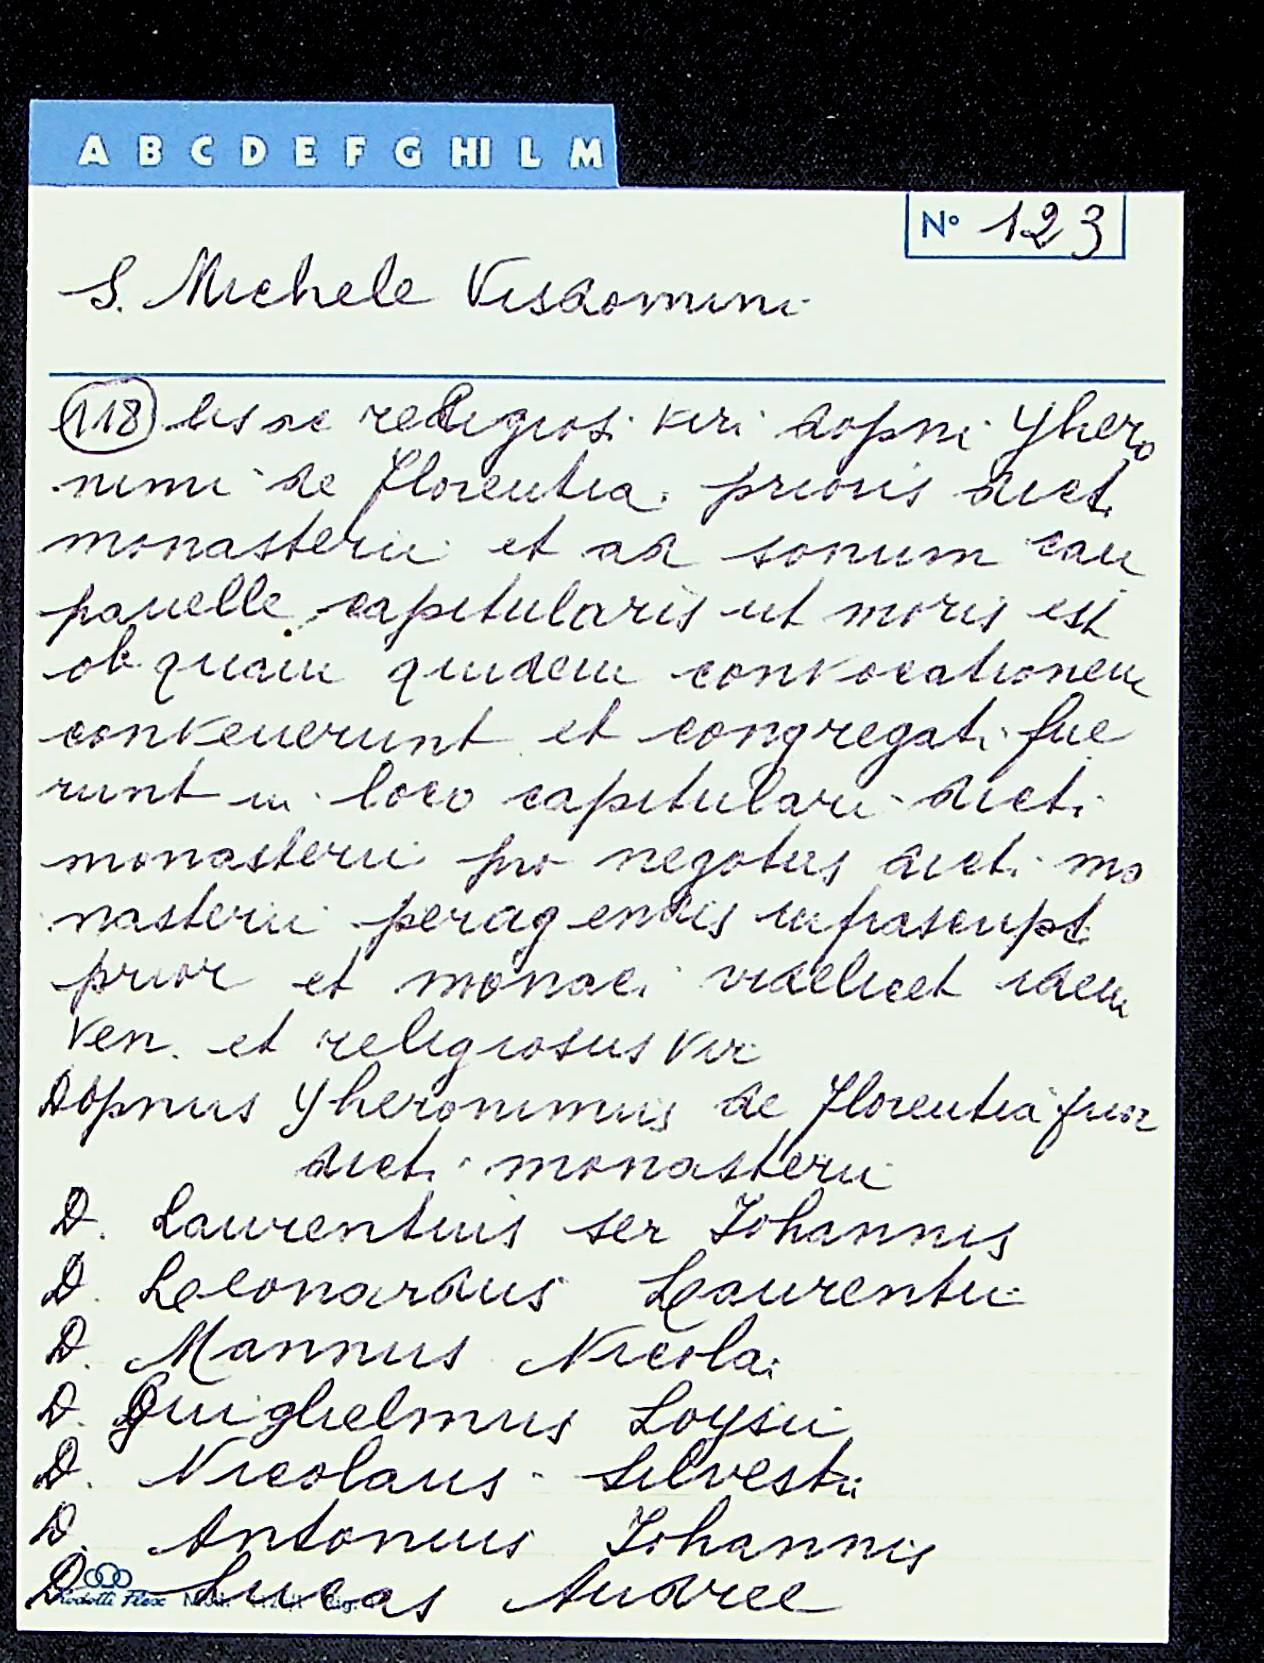 A B C D E F G HI L M
Nº 123
S. Michele Visdomini
(118) lis ac religiosi viri dopni Yhero
nimi de Florentia prioris dicti
monasterii et ad sonum cam
panelle capitularis ut moris est
ob quam quidem convocationem
convenerunt et congregati fue
runt in loco capitulari dicti
monasterii pro negotiis dicti mo
nasterii peragendis infrascripti
prior et monaci videlicet idem
ven. et religiosus vir
Dopnus Yheronimus de Florentia prior
dicti monasterii
D. Laurentius ser Iohannis
D. Leonardus Laurentii
D. Mannus Nicolai
D. Guighelmus Loysii
D. Nicolaus Silvestri
D. Antonius Iohannis
D. Lucas Andree